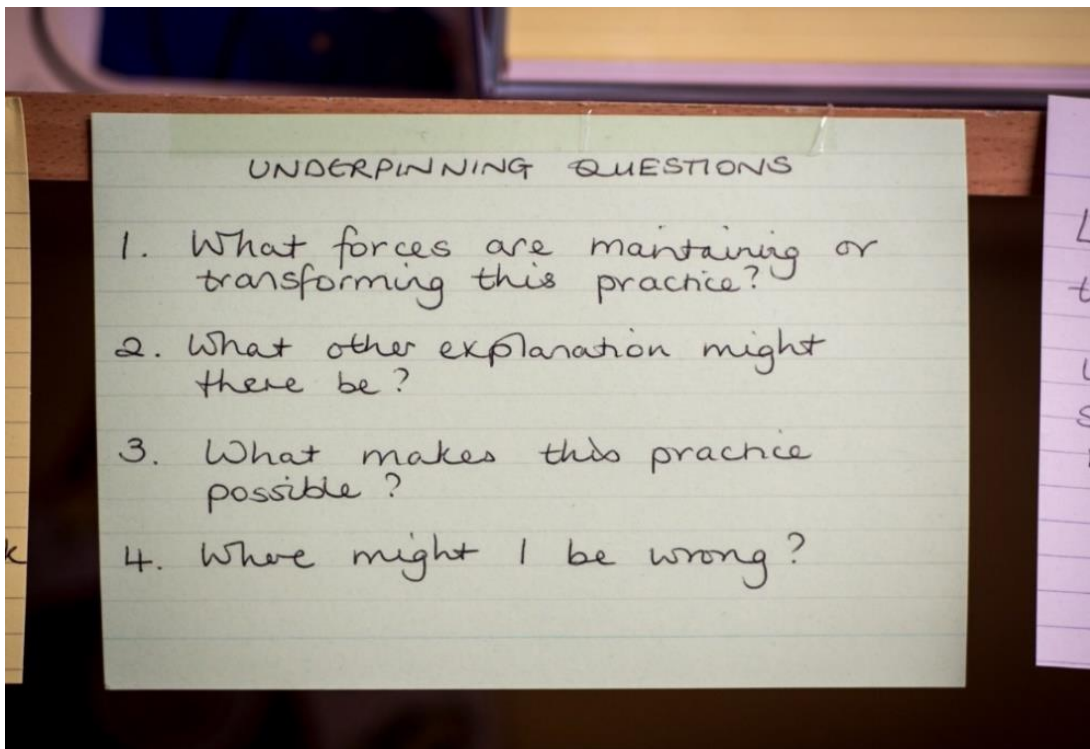 UNDERPINNING QUESTIONS
1. What forces are maintaining or
transforming this practice?
2. What other explanation might
there be?
3. What makes this practice
possible?
4. Where might I be wrong?